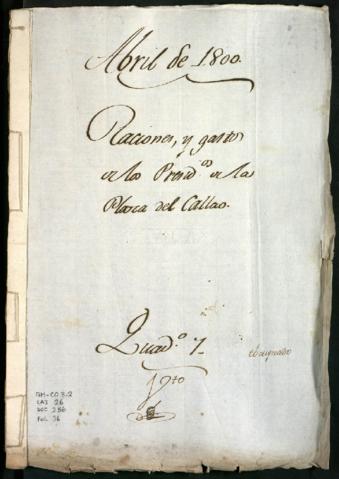 Abril de 1800.
Raciones, y gastos
de los Presid.os de la
Plasa del Callao.
Quad.o 7
GM-CO 3.2
CAJ 26
DOC 286
Fol. 36